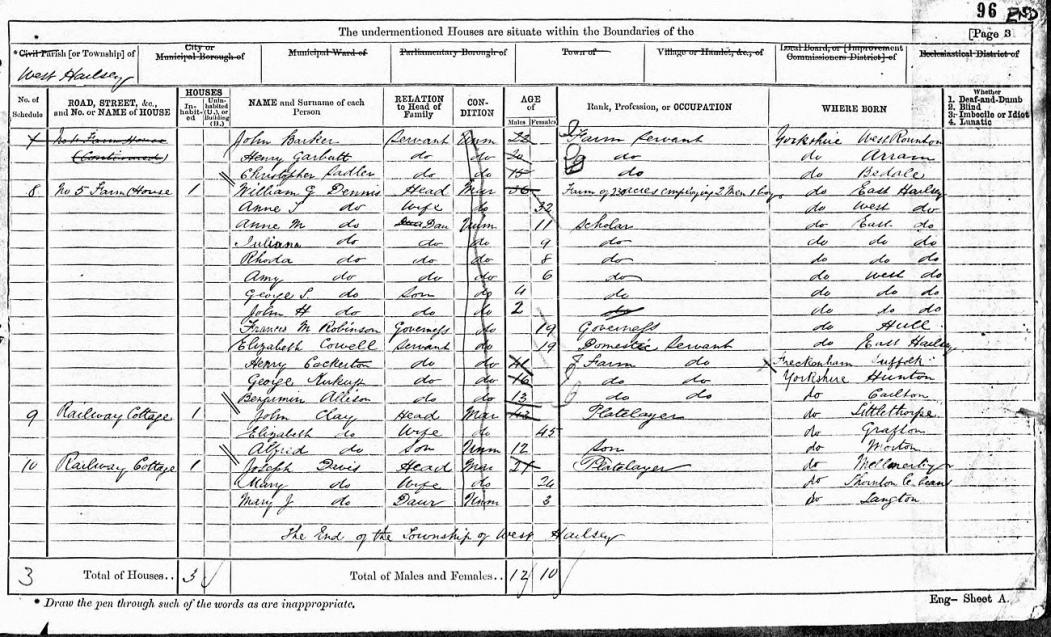 96 END
The undermentioned Houses are situate within the Boundaries of the [Page 3
* Civil Parish [or Township] of City or Municipal Borough of Municipal Ward of Parliamentary Borough of Town of Village or Hamlet, &c., of Local Board, or [Improvement Commissioners District] of Ecclesiastical District of
West Hailsey
No. of Schedule ROAD, STREET, &c., and No. or NAME of HOUSE HOUSES Inhabited Uninhabited (U.), or Building (B.) NAME and Surname of each Person RELATION to Head of Family CONDITION AGE of Males Females Rank, Profession, or OCCUPATION WHERE BORN Whether 1. Deaf-and-Dumb 2. Blind 3. Imbecile or Idiot 4. Lunatic
7 Farm House John Barker Servant Unm 22 Farm Servant Yorkshire West Rounton
(Continued) Henry Garbutt do do do do Arram
Christopher Sadler do do 15 do do Bedale
8 No 5 Farm House 1 William G Dennis Head Mar 36 Farm of acres employing 2 Men 1 boy do East Hailsey
Anne do Wife do 32 do West do
Anne M do Dau Unm 11 Scholar do East do
Juliana do do do 9 do do do do
Rhoda do do do 8 do do do do
Amy do do do 6 do do West do
George S. do Son do 4 do do do do
John H do do do 2 do do do do
Frances M Robinson Governess do 19 Governess do Hull
Elizabeth Cowell Servant do 19 Domestic Servant do East Hailsey
Henry Cockerton do do 41 Farm do Freckenham Suffolk
George Kirkup do do 16 do do Yorkshire Hunton
Benjamin Allison do do 13 do do do Carlton
9 Railway Cottage 1 John Clay Head Mar 43 Platelayer do Littlethorpe
Elizabeth do Wife do 45 do Grafton
Alfred do Son Unm 12 Son do Morton
10 Railway Cottage 1 Joseph Head Mar 27 Platelayer do
Mary do Wife do 26 do Thornton
Mary J do Daur Unm 3 do Langton
The End of the Township of West Hailsey
3 Total of Houses.. 3 Total of Males and Females.. 12 10
* Draw the pen through such of the words as are inappropriate. Eng- Sheet A.